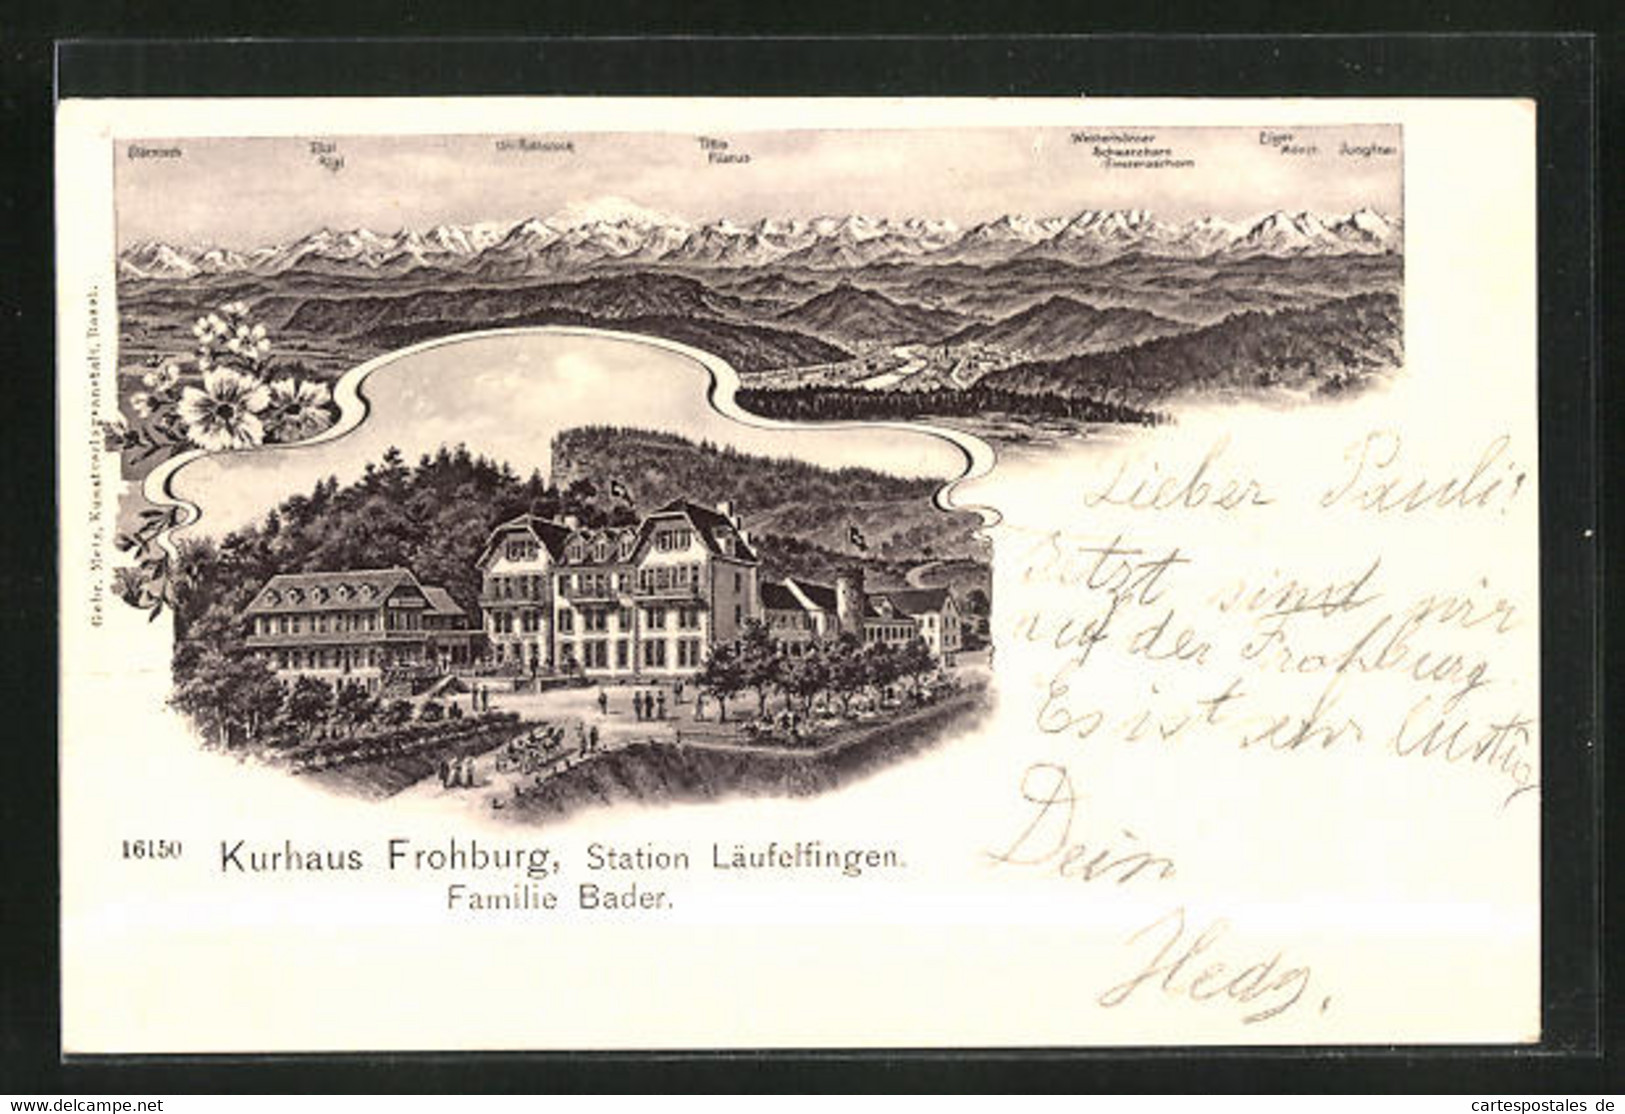 Glärnisch
Rigi
Uri-Rothstock
Titlis
Pilatus
Wetterhörner
Schwarzhorn
Finsteraarhorn
Eiger
Mönch
Jungfrau
Gebr. Metz, Kunstverlagsanstalt, Basel.
Lieber Pauli!
Jetzt sind wir
auf der Frohburg.
Es ist sehr lustig
Dein
Hedy.
16150 Kurhaus Frohburg, Station Läufelfingen.
Familie Bader.
www.delcampe.net
cartespostales de